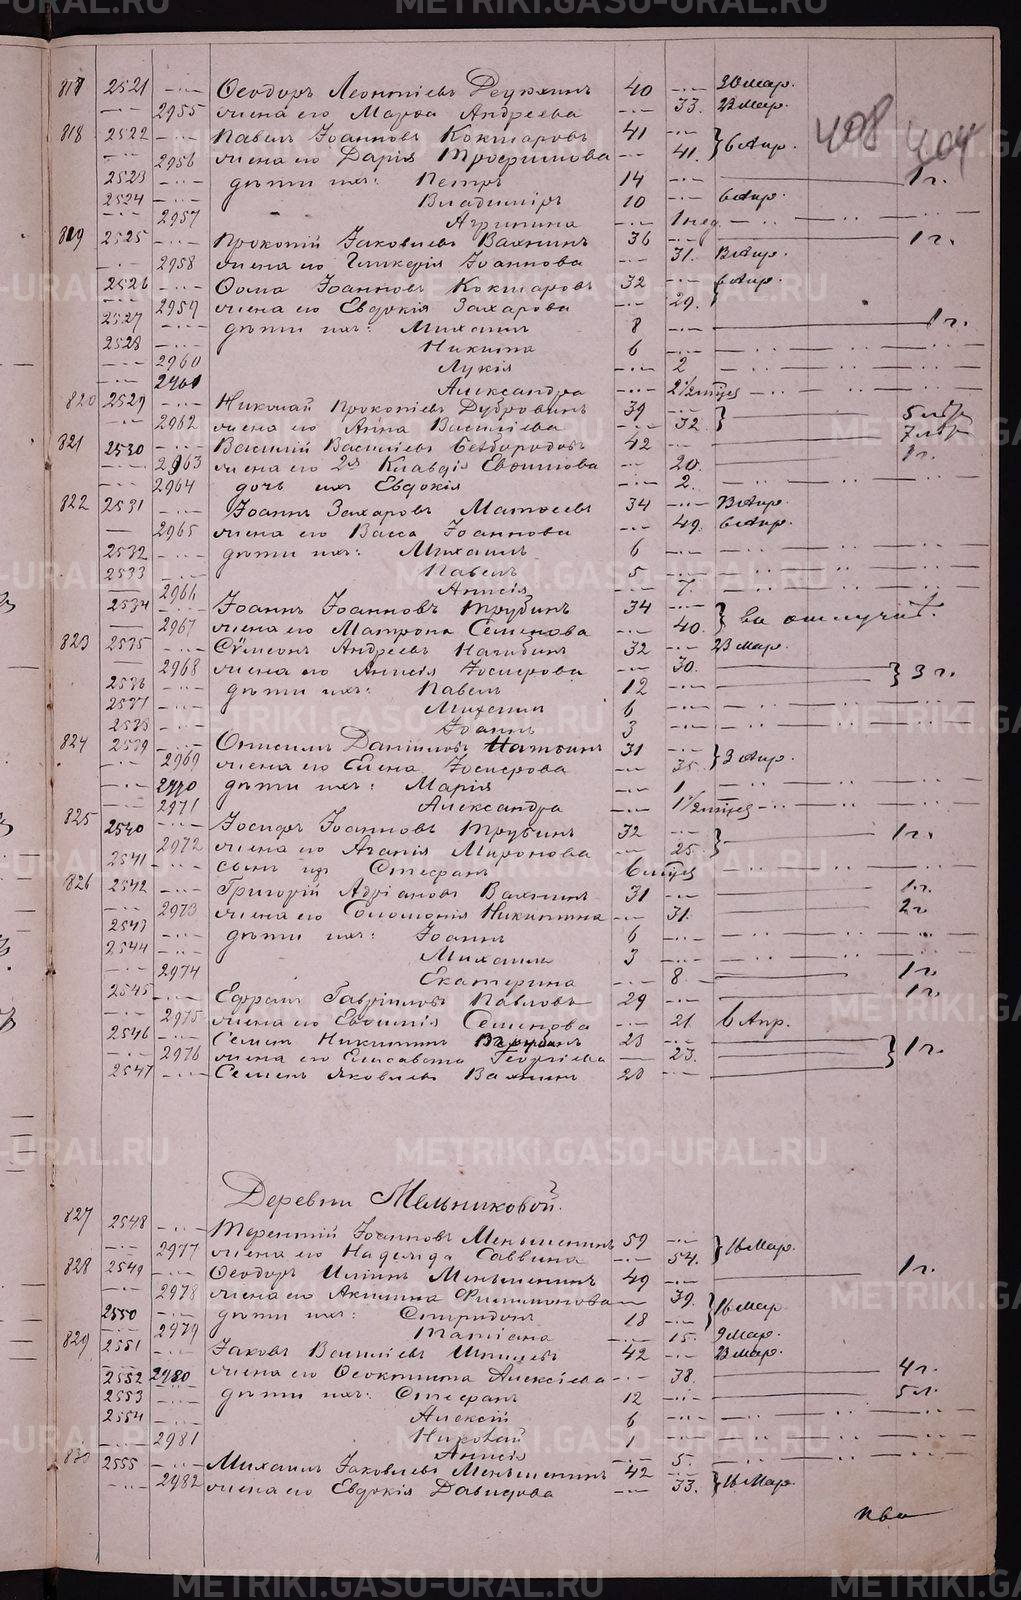 408 404
817 2521 -··- Ѳеодоръ Леонтіевъ 40 -··- 30 мар.
-··- 2955 жена его Марѳа Андреева -··- 33. 23 мар.
818 2522 -··- Павелъ Іоанновъ Кокшаровъ 41 -··- } 6 Апр.
-··- 2956 жена его Дарія Трофимова -··- 41.
2523 -··- дѣти ихъ: Петръ 14 -··- 1 г.
2524 -··- Владиміръ 10 -··- 6 Апр.
-··- 2957 Агрипина -··- 1 нед.
819 2525 -··- Прокопій Іаковлевъ Вахнинъ 36 -··- 1 г.
-··- 2958 жена его Гликерія Іоаннова -··- 31. Апр.
2526 -··- Ѳома Іоанновъ Кокшаровъ 32 -··- 6 Апр.
-··- 2959 жена его Евдокія Захарова -··- 29.
2527 -··- дѣти ихъ: Михаилъ 8 -··- 1 г.
2528 -··- Никита 6 -··-
-··- 2960 Лукія -··- 2
-··- 2961 Александра -··- 2 1/2 мѣс
820 2529 -··- Николай Прокопіевъ Дубровинъ 39 -··- } 5 лѣт
-··- 2962 жена его Анна Василіева -··- 32. 7 лѣт
821 2530 -··- Василій Василіевъ Безбородовъ 42 -··- 1 г.
-··- 2963 жена его 2я Клавдія Евѳимова -··- 20.
-··- 2964 дочь ихъ Евдокія -··- 2.
822 2531 -··- Іоаннъ Захаровъ Матѳеевъ 34 -··- Апр.
2965 жена его Васса Іоаннова -··- 49. 6 Апр.
2532 -··- дѣти ихъ: Михаилъ 6 -··-
2533 -··- Павелъ 5 -··-
2966 Анисія -··- 7.
2534 -··- Іоаннъ Іоанновъ Трубинъ 34 -··- } въ отлучкѣ.
2967 жена его Матрона Семенова -··- 40.
823 2535 -··- Сѵмеонъ Андреевъ 32 -··- 23 мар.
2968 жена его Анисія Іосифова -··- 30.
2536 -··- дѣти ихъ: Павелъ 12 -··- } 3 г.
2537 -··- Михаилъ 6 -··-
2538 -··- Іоаннъ 3 -··-
824 2539 -··- Онисимъ Даниловъ 31 -··- } 3 Апр.
-··- 2969 жена его Елена Іосифова -··- 35.
-··- 2970 дѣти ихъ: Марія -··- 1
-··- 2971 Александра -··- 1 1/2 мѣс
825 2540 -··- Іосифъ Іоанновъ Трубинъ 32 -··- } 1 г.
-··- 2972 жена его Агапія Миронова -··- 25.
2541 -··- сынъ их Стефанъ 6 мѣс
826 2542 -··- Григорій Адріановъ Вахнинъ 31 -··- 1 г.
-··- 2973 жена его Соломонія Никитина -··- 31. 2 г
2543 -··- дѣти ихъ: Іоаннъ 6 -··-
2544 -··- Михаилъ 3 -··-
-··- 2974 Екатерина -··- 8. 1 г.
2545 -··- Ефремъ Гавріиловъ Павловъ 29 -··- 1 г.
-··- 2975 жена его Евѳимія Семенова -··- 21. 6 Апр.
2546 -··- Семенъ Никитинъ 23 -··- } 1 г.
-··- 2976 жена его Елисавета Георгіева — 23.
2547 -··- Семенъ Яковлевъ Вахнинъ 20 -··-
Деревни Мельниковой.
827 2548 -··- Терентій Іоанновъ Меньшенинъ 59 -··- } 16 Мар.
-··- 2977 жена его Надежда Саввина -··- 54.
828 2549 -··- Ѳеодоръ Илiинъ Меньшенинъ 49 -··- 1 г.
-··- 2978 жена его Акилина Филимонова — 39. } 16 мар
2550 -··- дѣти ихъ: Спиридонъ 18 -··-
-··- 2979 Татіана -··- 15. 9 мар.
829 2551 -··- Іаковъ Василіевъ 42 -··- 23 мар.
2552 2980 жена его Ѳеоктиста Алексіева -··- 38. 4 г.
2553 -··- дѣти ихъ: Стефанъ 12 -··- 5 л.
2554 -··- Алексій 6 -··-
-··- 2981 Николай 1 -··-
Анисія -··- 5.
830 2555 -··- Михаилъ Іаковлевъ Меньшенинъ 42 -··- } 16 Мар.
-··- 2982 жена его Евдокія Давидова -··- 33.